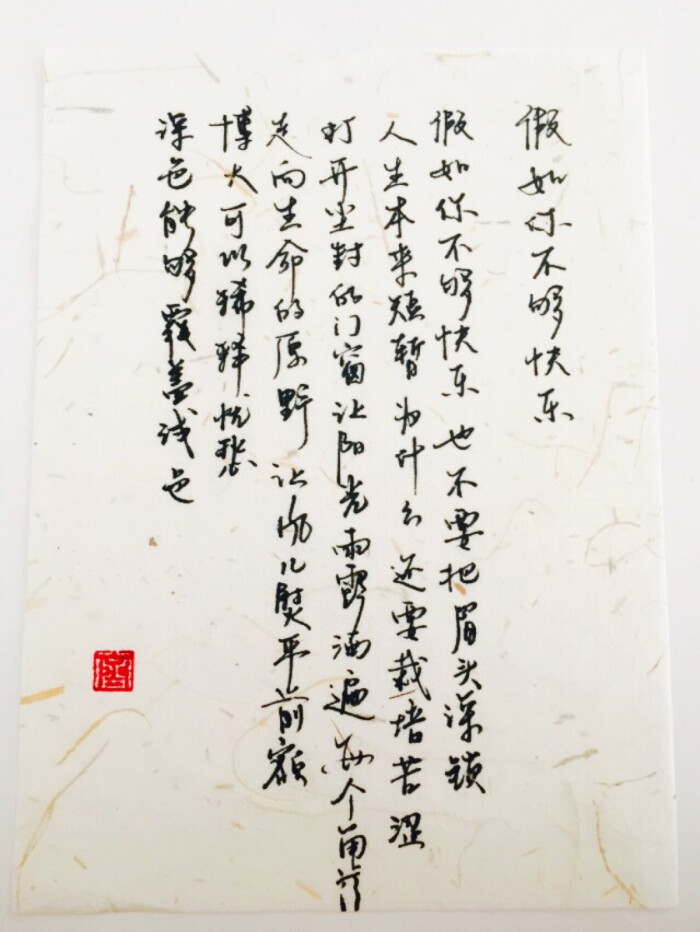 假如你不够快乐
假如你不够快乐 也不要把眉头深锁
人生本来短暂 为什么 还要栽培苦涩
打开尘封的门窗 让阳光雨露洒遍每个角落
走向生命的原野 让风儿熨平前额
博大可以稀释忧愁
深色能够覆盖浅色